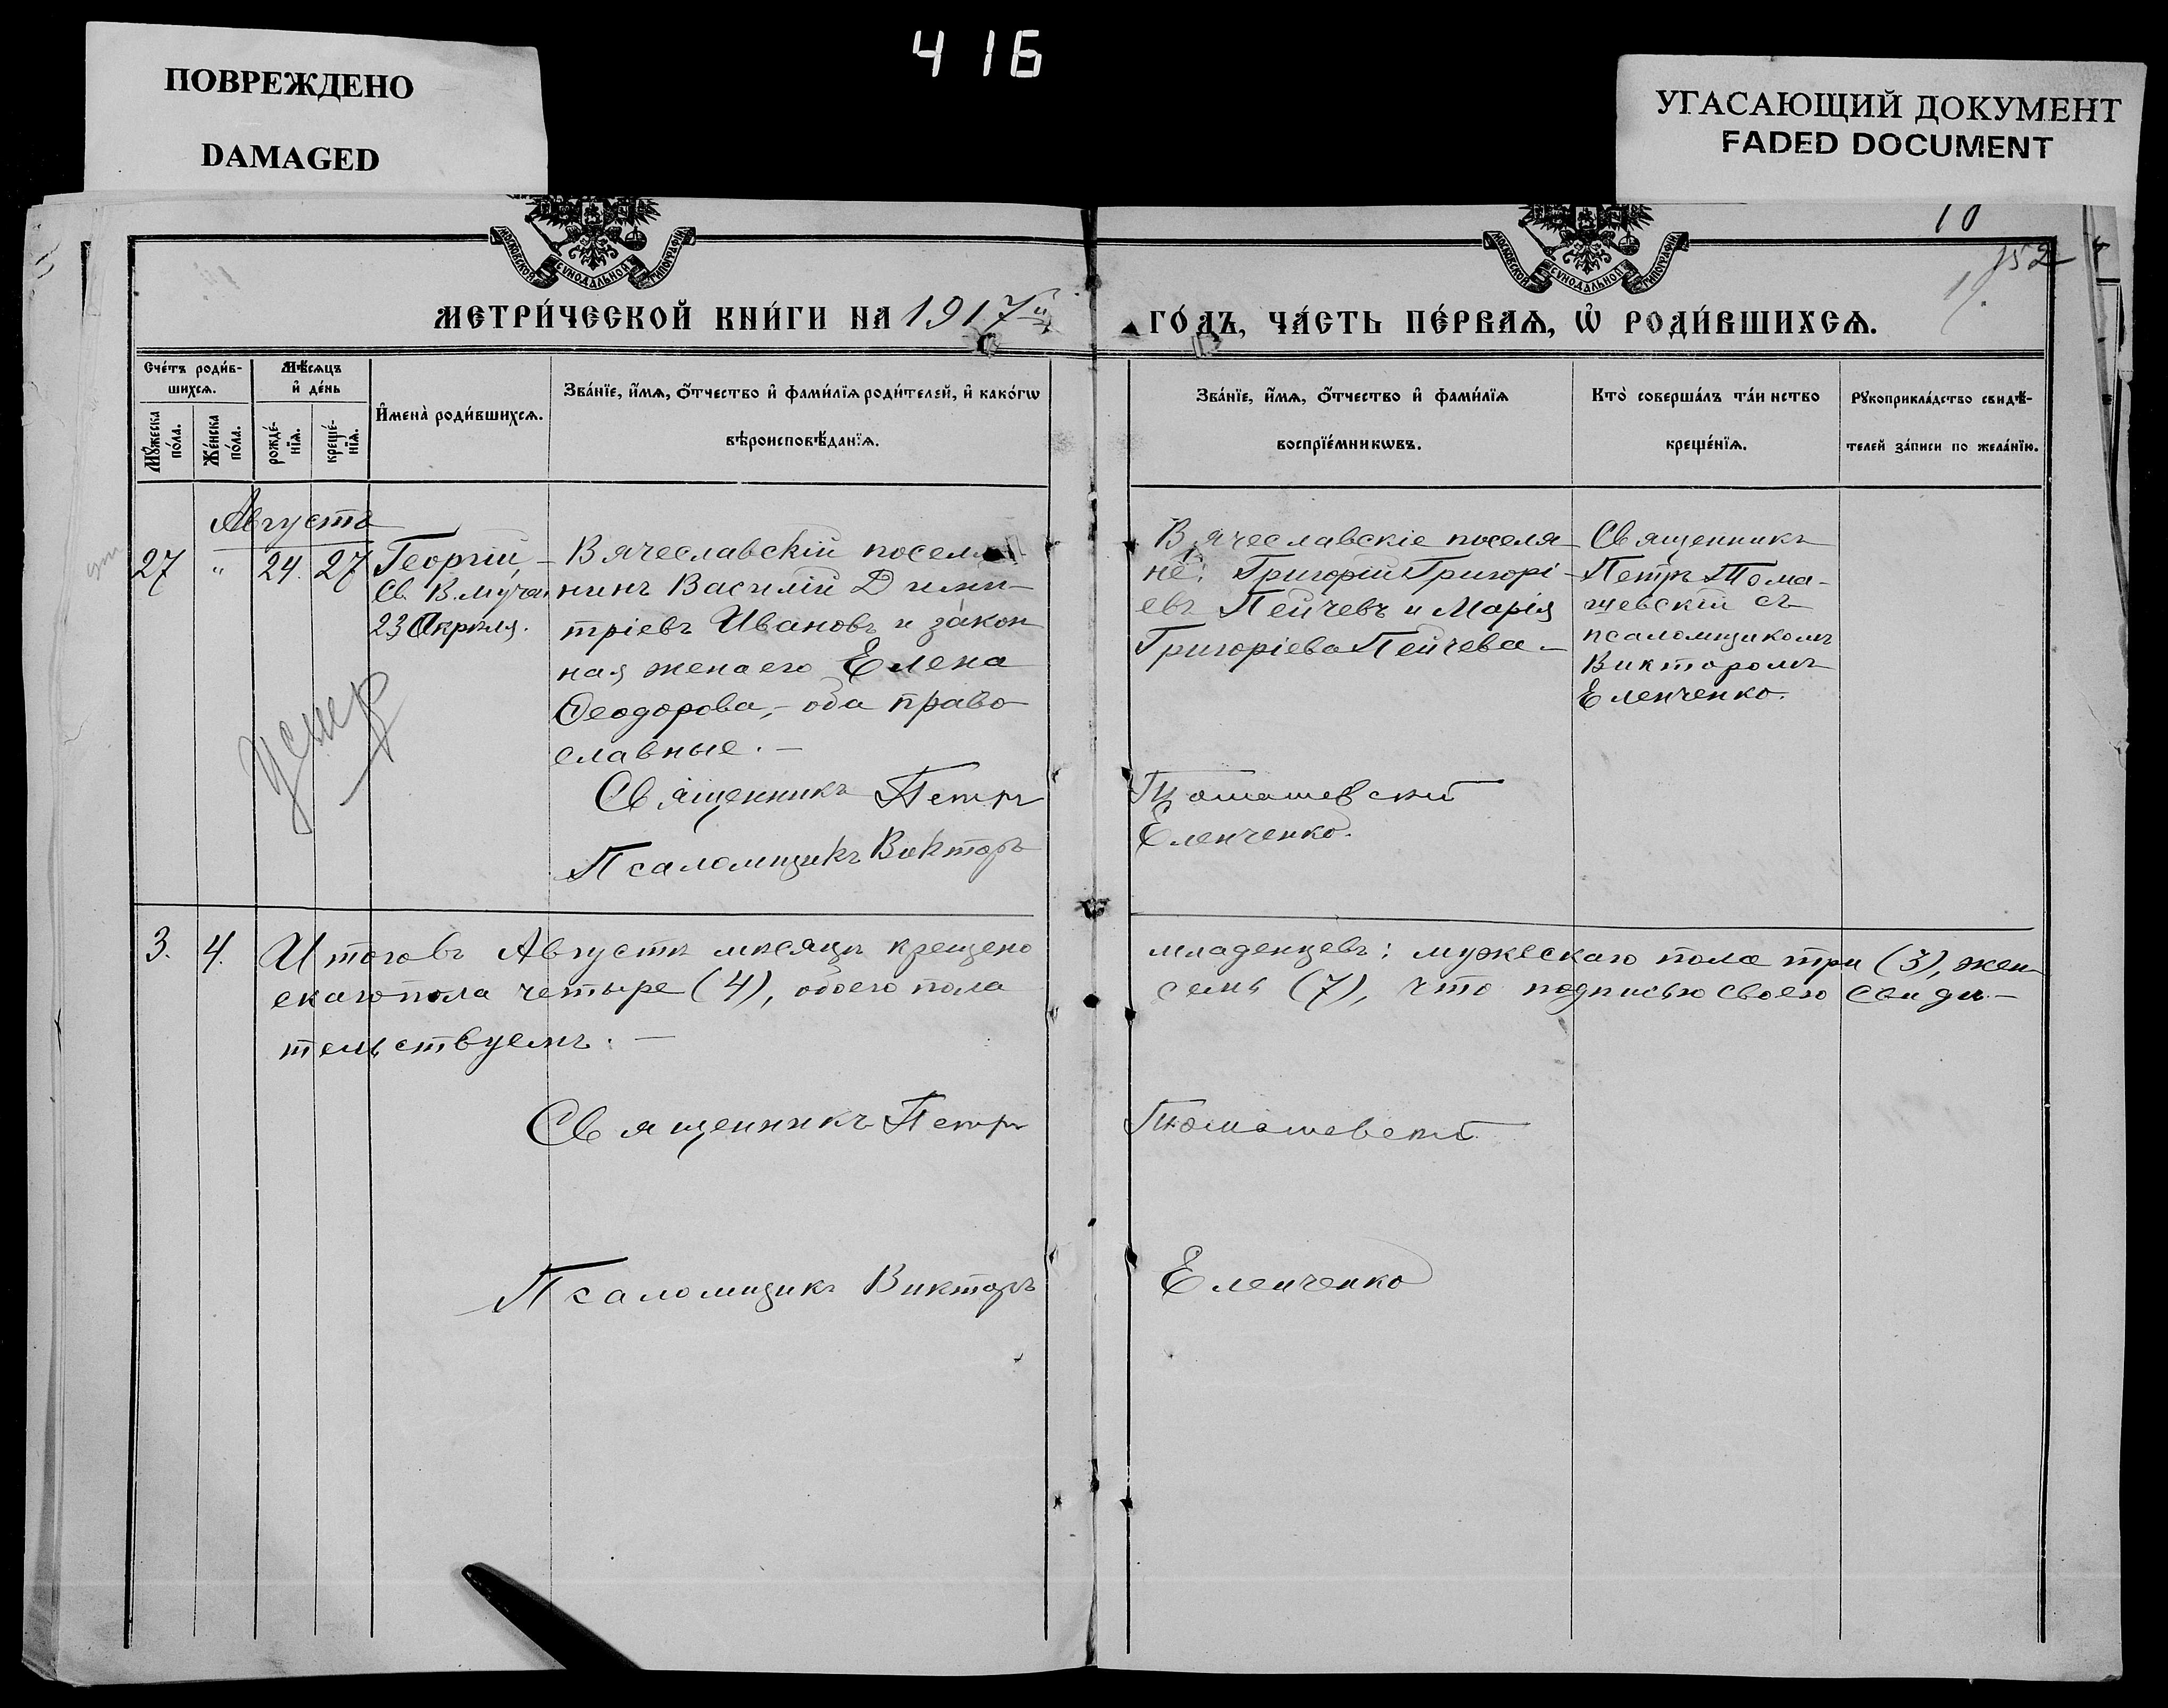 416
ПОВРЕЖДЕНО
DAMAGED
УГАСАЮЩИЙ ДОКУМЕНТ
FADED DOCUMENT
МОСКОВСКОЙ СѴНОДАЛЬНОЙ ТИПОГРАФІИ
МОСКОВСКОЙ СѴНОДАЛЬНОЙ ТИПОГРАФІИ
10
152
МЕТРИ́ЧЕСКОЙ КНИ́ГИ НА 1917й
ГО́ДЪ, ЧА́СТЬ ПЕ́РВАѦ, Ѡ҆ РОДИ́ВШИХСѦ.
Сче́тъ роди́в-
шихсѧ.
Мꙋ́жеска по́ла.
Же́нска по́ла.
Мѣ́сѧцъ
и҆ де́нь
рожде́-
нїѧ.
креще́-
нїѧ.
И҆мена̀ роди́вшихсѧ.
Зва́нїе, и҆́мѧ, ѻ҆́тчество и҆ фами́лїѧ роди́телей, и҆ како́гѡ
вѣроисповѣ́данїѧ.
Зва́нїе, и҆́мѧ, ѻ҆́тчество и҆ фами́лїѧ
воспрїе́мникѡвъ.
Кто̀ соверша́лъ та́инство
креще́нїѧ.
Рꙋкоприкла́дство свидѣ́-
телей за́писи по жела́нїю.
Августъ
27 " 24. 27 Георгій, -
Св. В.мучен
23 Апрѣля.
умер
Вячеславскій поселя-
нинъ Василій Дими-
тріевъ Ивановъ и закон
ная жена его Елена
Ѳеодорова, - оба право
славные. -
Священникъ Петръ
Псаломщикъ Викторъ
Вячеславскіе поселя-
не: Григорій Григорі-
евъ Пейчевъ и Марія
Григоріева Пейчева. -
Томашевскій
Еленченко.
Священникъ
Петръ Тома-
шевскій съ
псаломщикомъ
Викторомъ
Еленченко.
3. 4. Итого въ Августѣ мѣсяцѣ крещено младенцевъ: мужескаго пола три (3), жен
скаго пола четыре (4), обоего пола семь (7), что подписью своею свидѣ-
тельствуемъ. -
Священникъ Петръ Томашевскій
Псаломщикъ Викторъ Еленченко